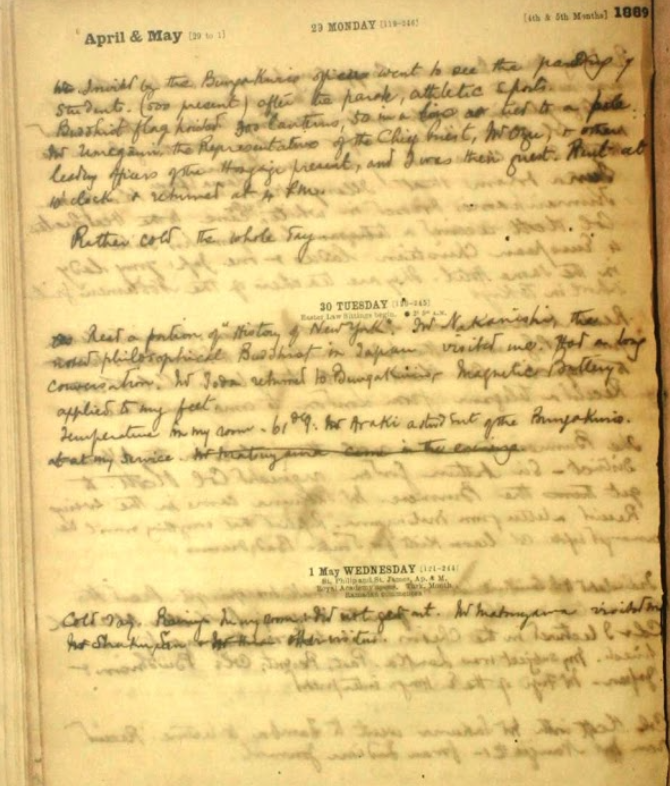 April & May [29 to 1]
29 MONDAY [119-246]
[4th & 5th Months] 1889
Invited by the Bungakurio officers went to see the parading of
Students. (500 present) after the parade, athletic sports.
Buddhist flag hoisted 300 lanterns, 50 in a line tied to a pole.
Mr the Representatives of the Chief Priest, Mr & other
leading officers of the present, and I was their guest. Went at
o'clock & returned at 4 P.M.
Rather cold the whole day
30 TUESDAY [120-245]
Easter Law Sittings begin.
Read a portion of "History of New York". Mr Nakanishi, the
noted philosophical Buddhist in Japan visited me. Had a long
conversation. Mr returned to Bungakurio, Magnetic Battery
applied to my feet
Temperature in my room - 61° Mr Araki a student of the Bungakurio.
at my service. Mr Matsuyama came in the evening
1 May WEDNESDAY [121-244]
St. Philip and St. James, Ap. & M.
Royal Academy opens.
Ramadan commences
Cold day. in my room: Did not get out. Mr Matsuyama visited me
Mr & other